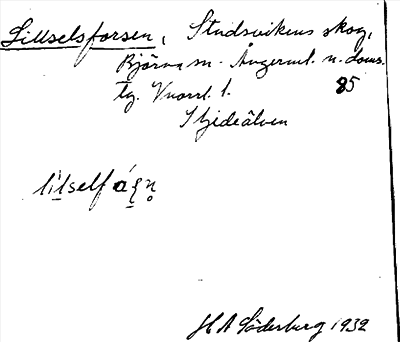 Lillselsforsen, Studsvikens skog,
Björna sn. Ångerml. n. doms.
tg. Vnorrl. l. 85
I Gideälven
lìlself
H A Söderberg 1932